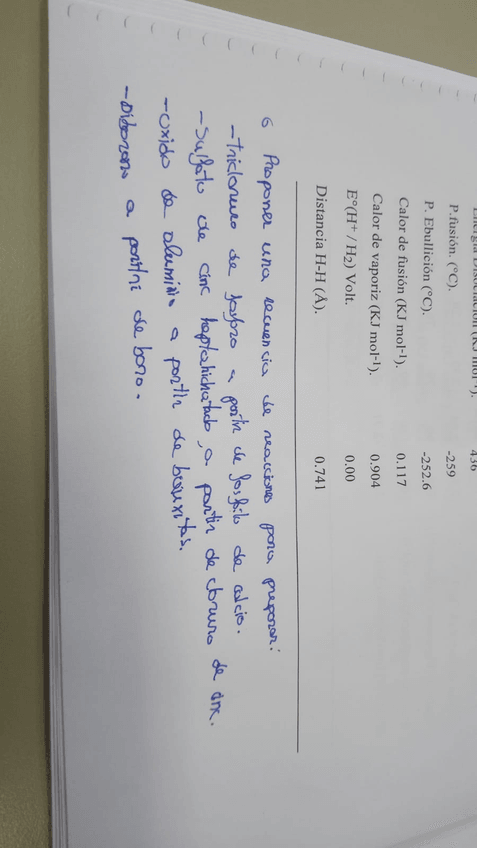 Energía Disociación (KJ mol⁻¹). 436
P.fusión. (°C). -259
P. Ebullición (°C). -252.6
Calor de fusión (KJ mol⁻¹). 0.117
Calor de vaporiz (KJ mol⁻¹). 0.904
E°(H⁺ / H₂) Volt. 0.00
Distancia H-H (Å). 0.741
6 Proponer una secuencia de reacciones para preparar:
-tricloruro de fosforo a partir de fosfato de calcio.
-Sulfato de cinc heptahidratado, a partir de cloruro de cinc.
-oxido de aluminio a partir de bauxitas.
-Diborano a partir de boro.